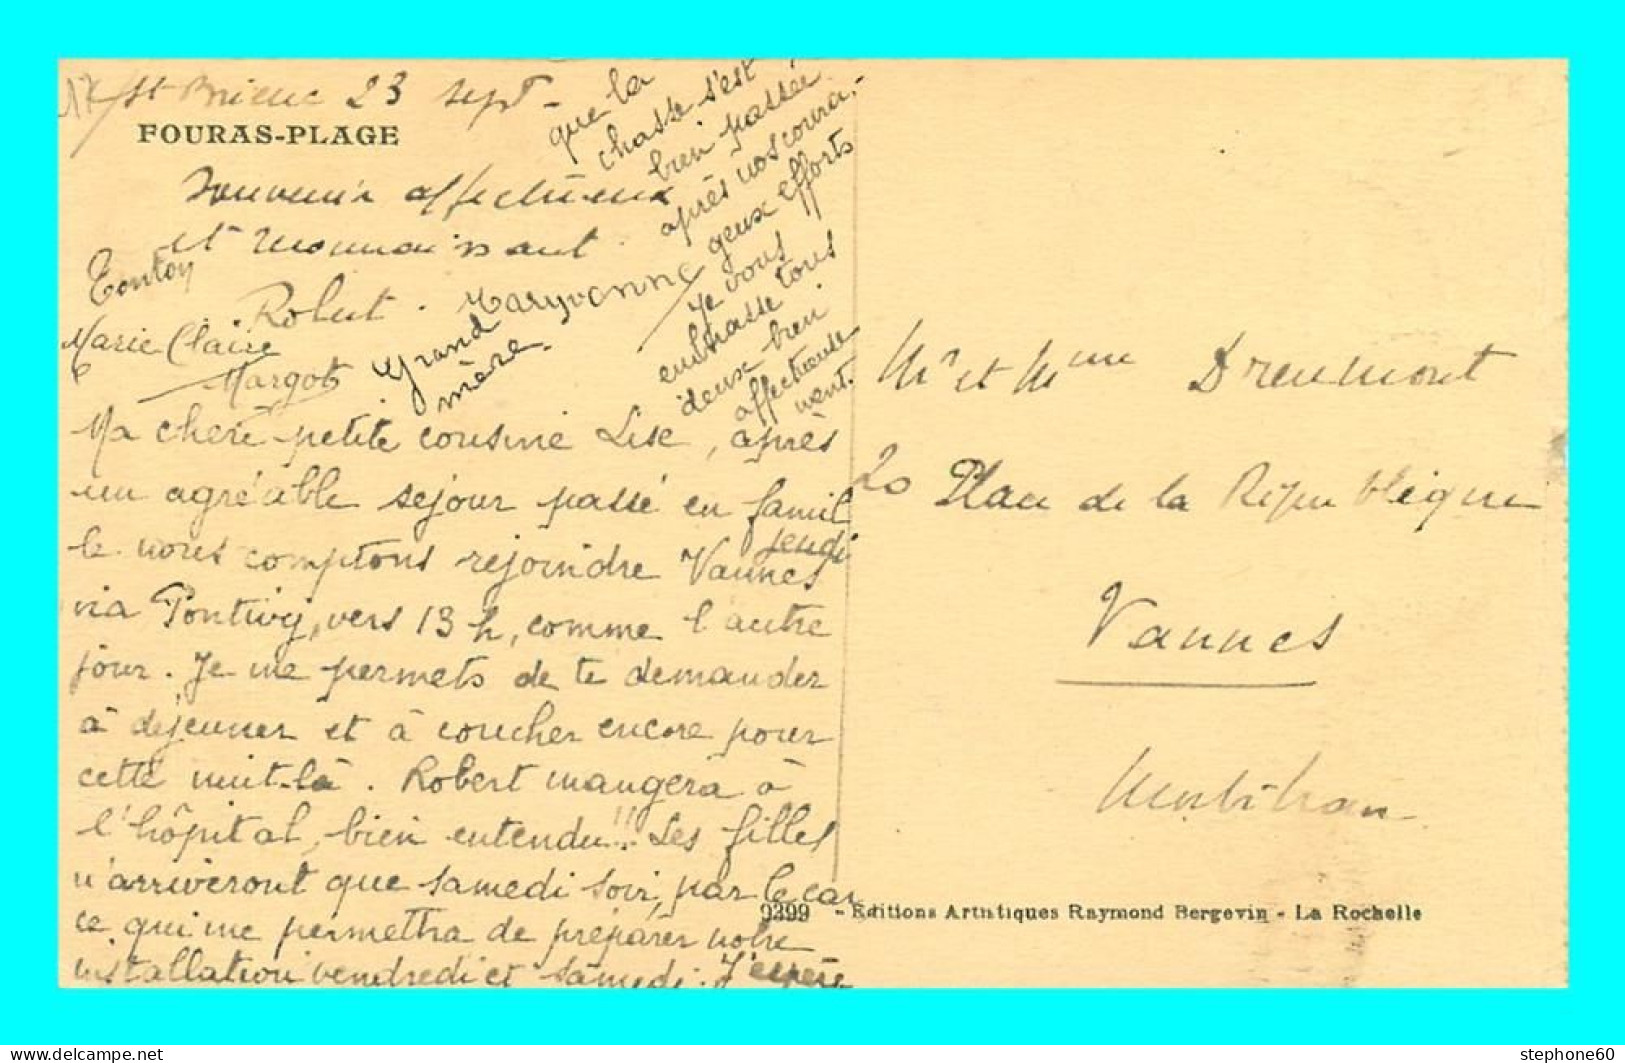 17/ St Brieuc 23 sept-
FOURAS-PLAGE
Souvenir affectueux
et reconnaissant.
Tonton
Robert. Maryvonne
Marie Claire
Margot
Grand
mère.
Ma chère petite cousine Lise, après
un agréable séjour passé en famil
le nous comptons rejoindre Vannes jeudi
via Pontivy, vers 13 h, comme l'autre
jour. Je me permets de te demander
à déjeuner et à coucher encore pour
cette nuit-là. Robert mangera à
l'hôpital, bien entendu!! Les filles
n'arriveront que samedi soir, par le car
ce qui me permettra de préparer notre
installation vendredi et samedi. J'espère
que la
chasse s'est
bien passée
après nos coura-
geux efforts
Je vous
embrasse tous
deux bien
affectueuse
ment.
Mr et Mme Dreumont
20 Place de la République
Vannes
Morbihan
9399 - Editions Artistiques Raymond Bergevin - La Rochelle
www.delcampe.net
stephone60